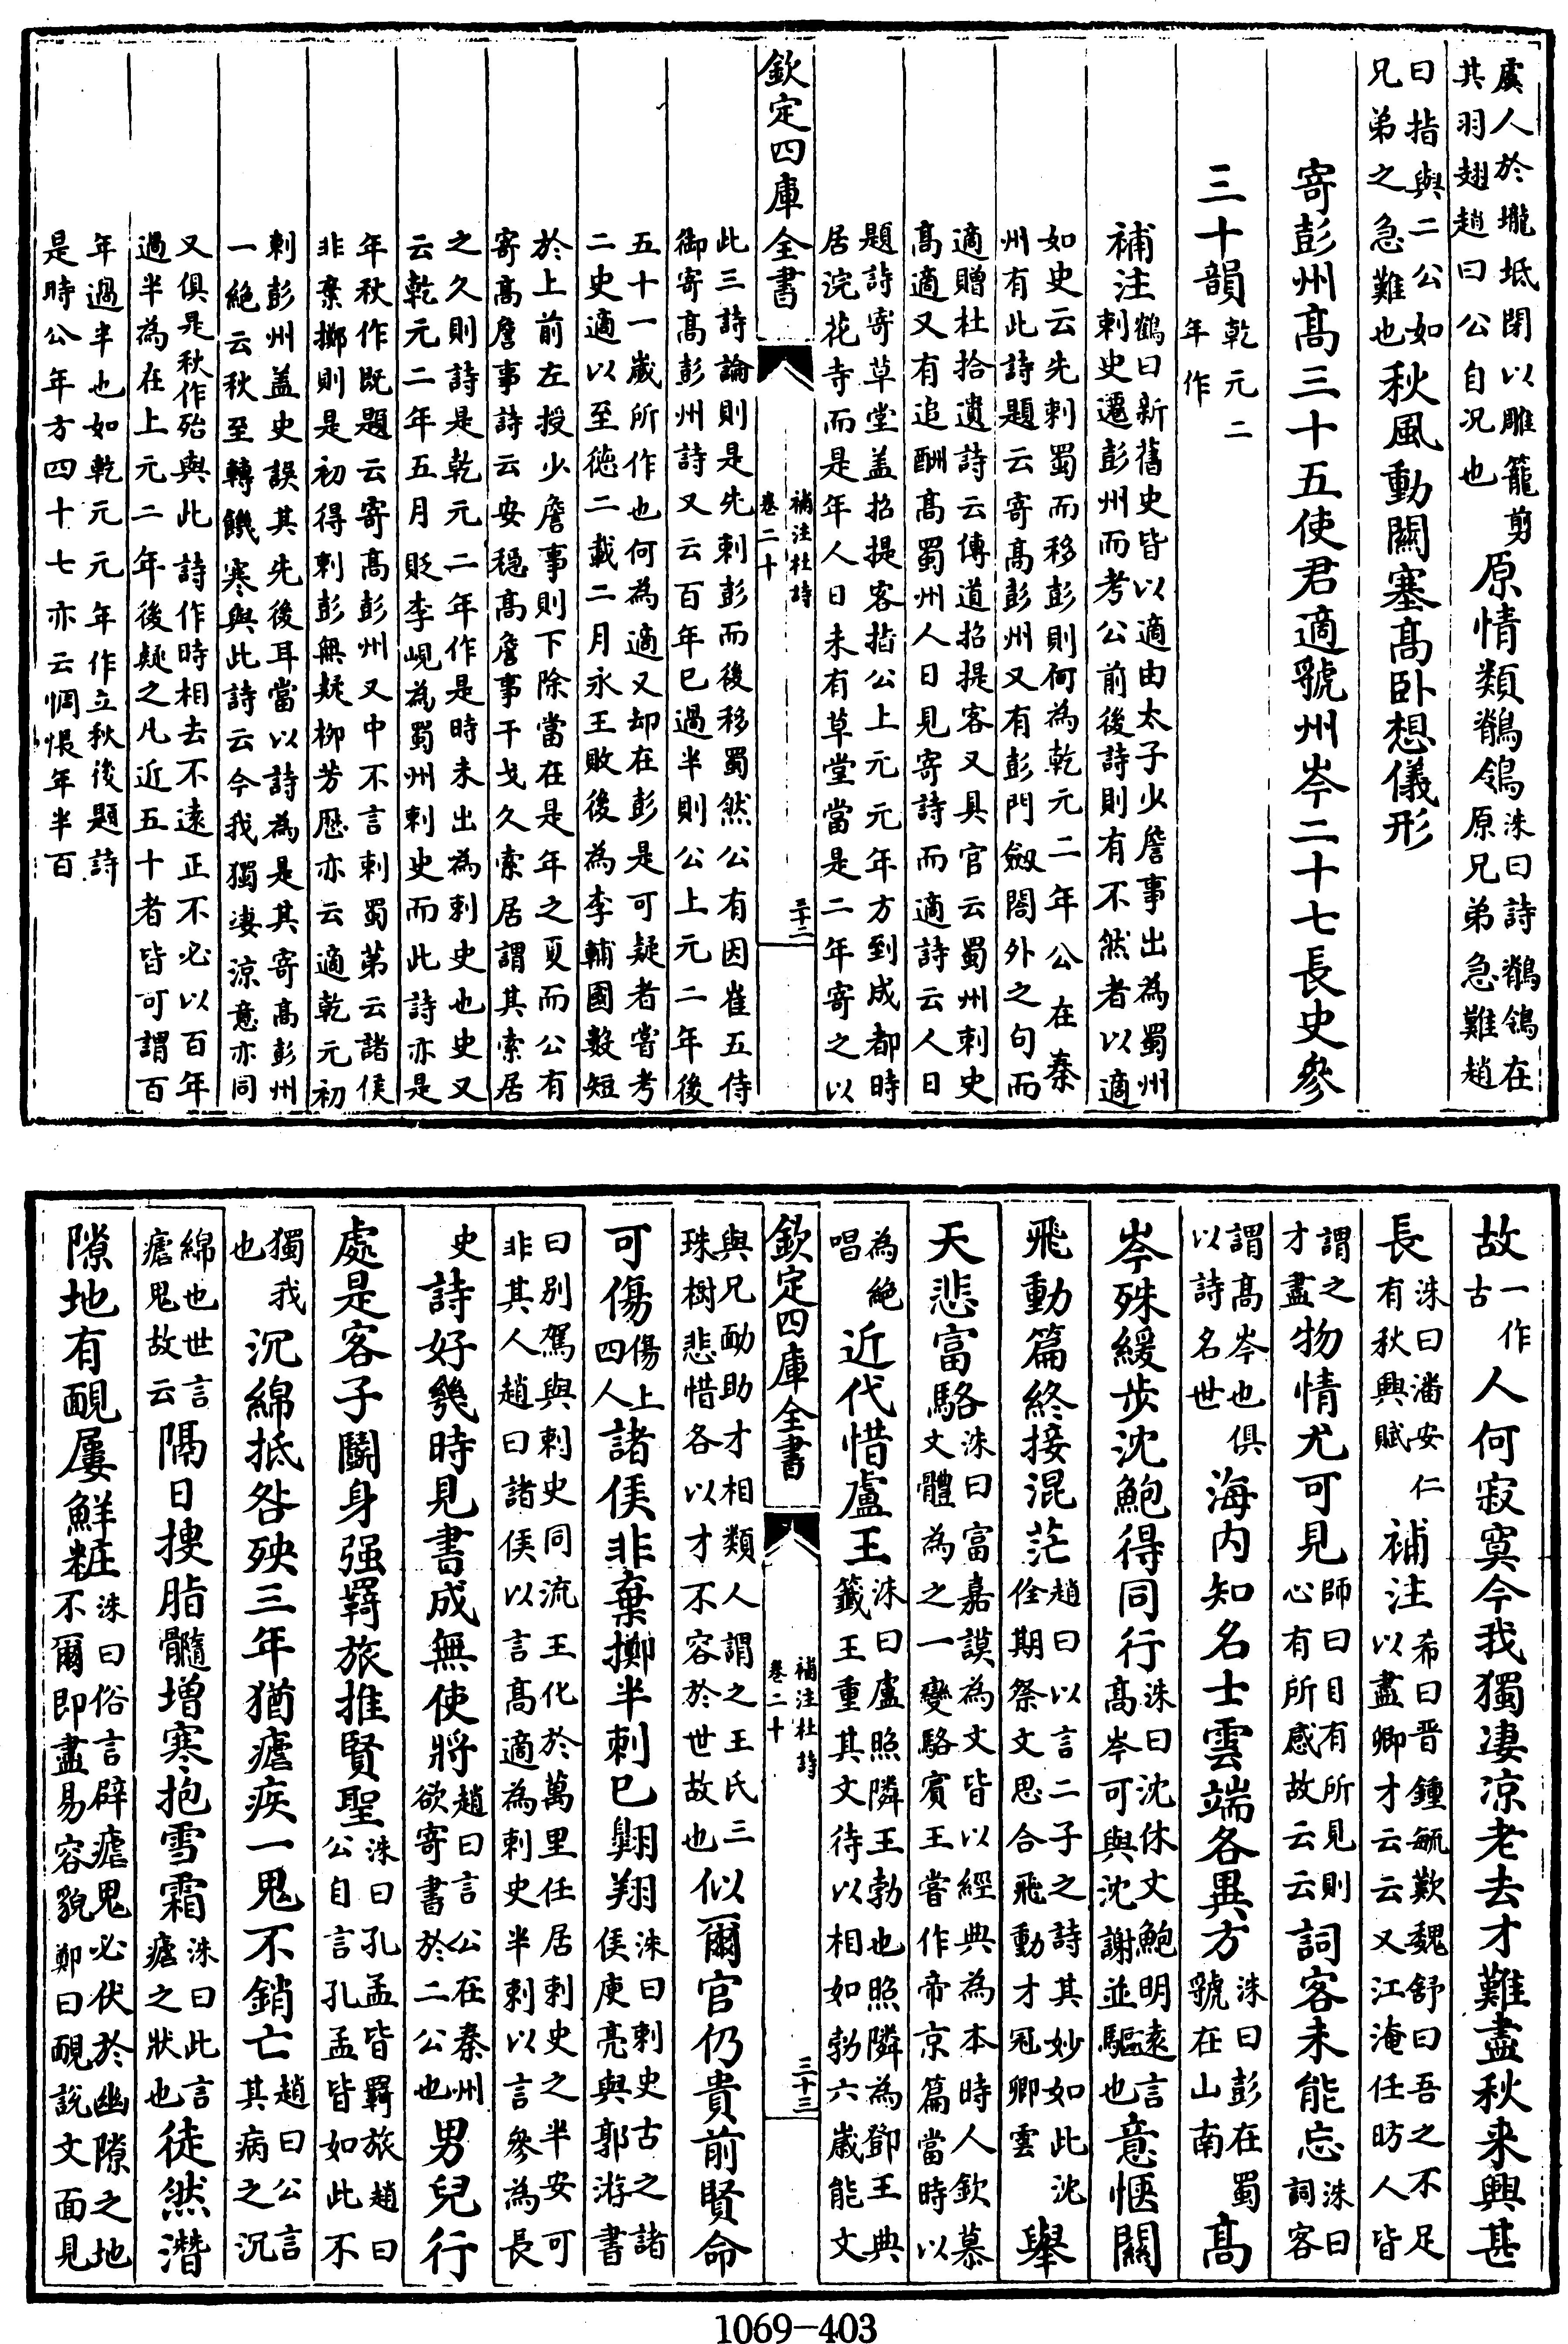 虞人於壠坻閉以雕籠剪其羽翅趙曰公自况也原情類鶺鴒洙曰詩鶺鴒在原兄弟急難趙
曰指與二公如兄弟之急難也秋風動關塞髙卧想儀形
寄彭州髙三十五使君適虢州岑二十七長史參
三十韻乾元二年作
補注鶴曰新舊史皆以適由太子少詹事出為蜀州刺史遷彭州而考公前後詩則有不然者以適
如史云先刺蜀而移彭則何為乾元二年公在秦州有此詩題云寄髙彭州又有彭門劔閣外之句而
適贈杜拾遺詩云傳道招提客又具官云蜀州刺史髙適又有追酬髙蜀州人日見寄詩而適詩云人日
題詩寄草堂盖招提客指公上元元年方到成都時居浣花寺而是年人日未有草堂當是二年寄之以
欽定四庫全書 補注杜詩 卷二十 三十二
此三詩論則是先刺彭而後移蜀然公有因崔五侍御寄髙彭州詩又云百年已過半則公上元二年後
五十一歲所作也何為適又却在彭是可疑者嘗考二史適以至徳二載二月永王敗後為李輔國數短
於上前左授少詹事則下除當在是年之夏而公有寄髙詹事詩云安穏髙詹事干戈久索居謂其索居
之久則詩是乾元二年作是時未出為刺史也史又云乾元二年五月貶李峴為蜀州刺史而此詩亦是
年秋作既題云寄髙彭州又中不言刺蜀第云諸侯非棄擲則是初得刺彭無疑柳芳歴亦云適乾元初
刺彭州盖史誤其先後耳當以詩為是其寄髙彭州一絶云秋至轉饑寒與此詩云今我獨凄涼意亦同
又俱是秋作殆與此詩作時相去不遠正不必以百年過半為在上元二年後疑之凡近五十者皆可謂百
年過半也如乾元元年作立秋後題詩是時公年方四十七亦云惆悵年半百
故一作古人何寂寞今我獨凄涼老去才難盡秋来興甚
長洙曰潘安仁有秋興賦補注希曰晋鍾毓歎魏舒曰吾之不足以盡卿才云云又江淹任昉人皆
謂之才盡物情尤可見師曰目有所見則心有所感故云云詞客未能忘洙曰詞客
謂髙岑也俱以詩名世海内知名士雲端各異方洙曰彭在蜀虢在山南髙
岑殊緩步沈鮑得同行洙曰沈休文鮑明遠言髙岑可與沈謝並驅也意愜關
飛動篇終接混茫趙曰以言二子之詩其妙如此沈佺期祭文思合飛動才冠卿雲舉
天悲富駱洙曰富嘉謨為文皆以經典為本時人欽慕文體為之一變駱賓王嘗作帝京篇當時以
為絶唱近代惜盧王洙曰盧照隣王勃也照隣為鄧王典籖王重其文待以相如勃六歲能文
欽定四庫全書 補注杜詩 卷二十 三十三
與兄勔助才相類人謂之王氏三珠樹悲惜各以才不容於世故也似爾官仍貴前賢命
可傷傷上四人諸侯非棄擲半刺已翺翔洙曰刺史古之諸侯庾亮與郭游書
曰别駕與刺史同流王化於萬里任居刺史之半安可非其人趙曰諸侯以言髙適為刺史半刺以言參為長
史詩好幾時見書成無使將趙曰言公在秦州欲寄書於二公也男兒行
處是客子鬭身强羇旅推賢聖洙曰孔孟皆羇旅趙曰公自言孔孟皆如此不
獨我也沉綿抵咎殃三年猶瘧疾一鬼不銷亡趙曰公言其病之沉
綿也世言瘧鬼故云隔日搜脂髓增寒抱雪霜洙曰此言瘧之狀也徒然潛
隙地有靦屢鮮粧洙曰俗言辟瘧鬼必伏於幽隙之地不爾即盡易容貌鄭曰靦說文面見
1069-403